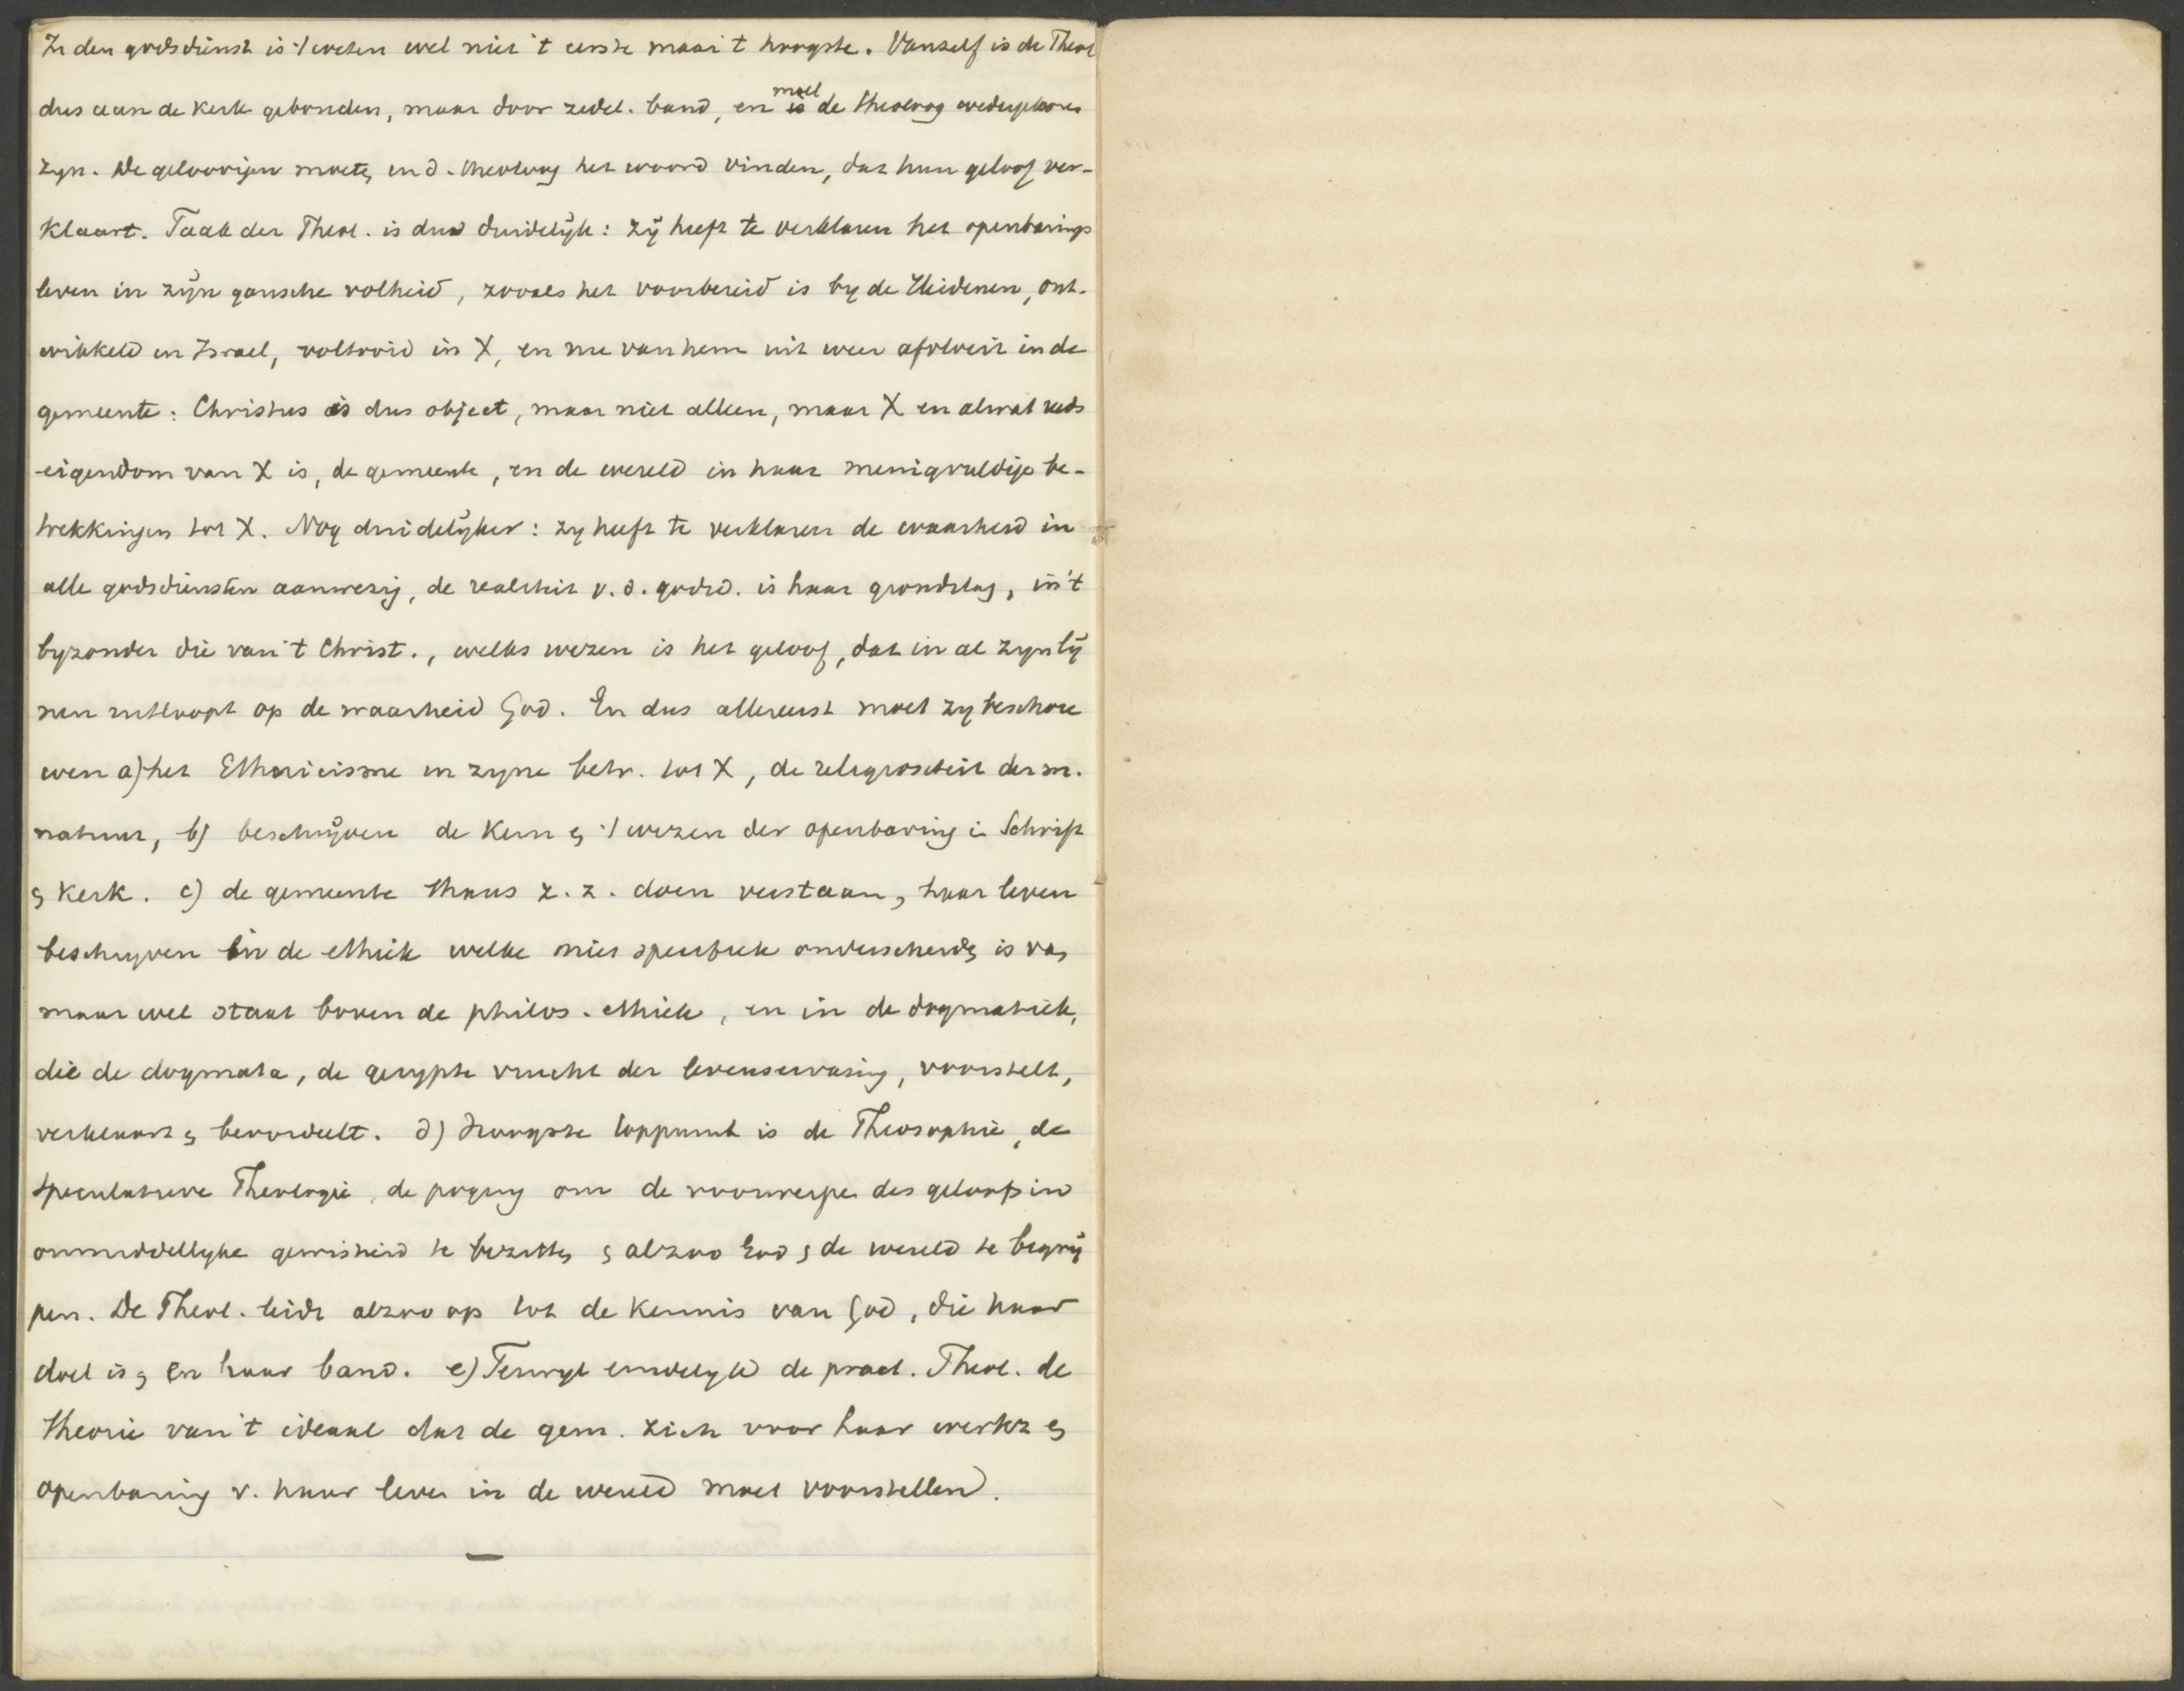 In den godsdienst is 't weten wel niet 't eerste maar 't hoogste. Vanzelf is de Theol
dus aan de kerk gebonden, maar door zedel. band, en moet de theoloog wedergeboren
zyn. De geloovigen moete, in d. theoloog het woord vinden, dat hun geloof ver-
klaart. Taak der Theol. is dus duidelijk: zij heeft te verklaren het openbarings
leven in zijn gansche volheid, zooals het voorbereid is by de Heidenen, ont-
wikkeld in Israel, voltooid in X, en nu van hem uit weer afvloeit in de
gemeente: Christus is dus object, maar niet alleen, maar X en alwat reeds
eigendom van X is, de gemeente, en de wereld in haar menigvuldige be-
trekkingen tot X. Nog duidelijker: zy heeft te verklaren de waarheid in
alle godsdiensten aanwezig, de realiteit v. d. godsd. is haar grondslag, in 't
byzonder die van 't Christ., welks wezen is het geloof, dat in al zyn lij
nen uitloopt op de waarheid God. En dus allereerst moet zy beschou
wen a) het Ethnicisme in zyne betr. tot X, de religiositeit der m.
natuur, b) beschrijven de kern en 't wezen der openbaring in Schrift
en Kerk. c) de gemeente thans z. z. doen verstaan, haar leven
beschryven in de ethiek welke niet specifiek onderscheide is van
maar wel staat boven de philos. ethiek, en in de dogmatiek,
die de dogmata, de gerypte vrucht der levenservaring, voorstelt,
verklaart en beoordeelt. d) Hoogste toppunt is de Theosophie, de
speculatieve Theologie, de poging om de voorwerpen des geloofs in
onmiddellyke gewisheid te bezitten en alzoo God en de wereld te begrij
pen. De Theol. leidt alzoo op tot de kennis van God, die haar
doel is, en haar band. e) Terwyl eindelyk de pract. Theol. de
theorie van 't ideaal dat de gem. zich voor haar werkz en
openbaring v. haar leven in de wereld moet voorstellen.